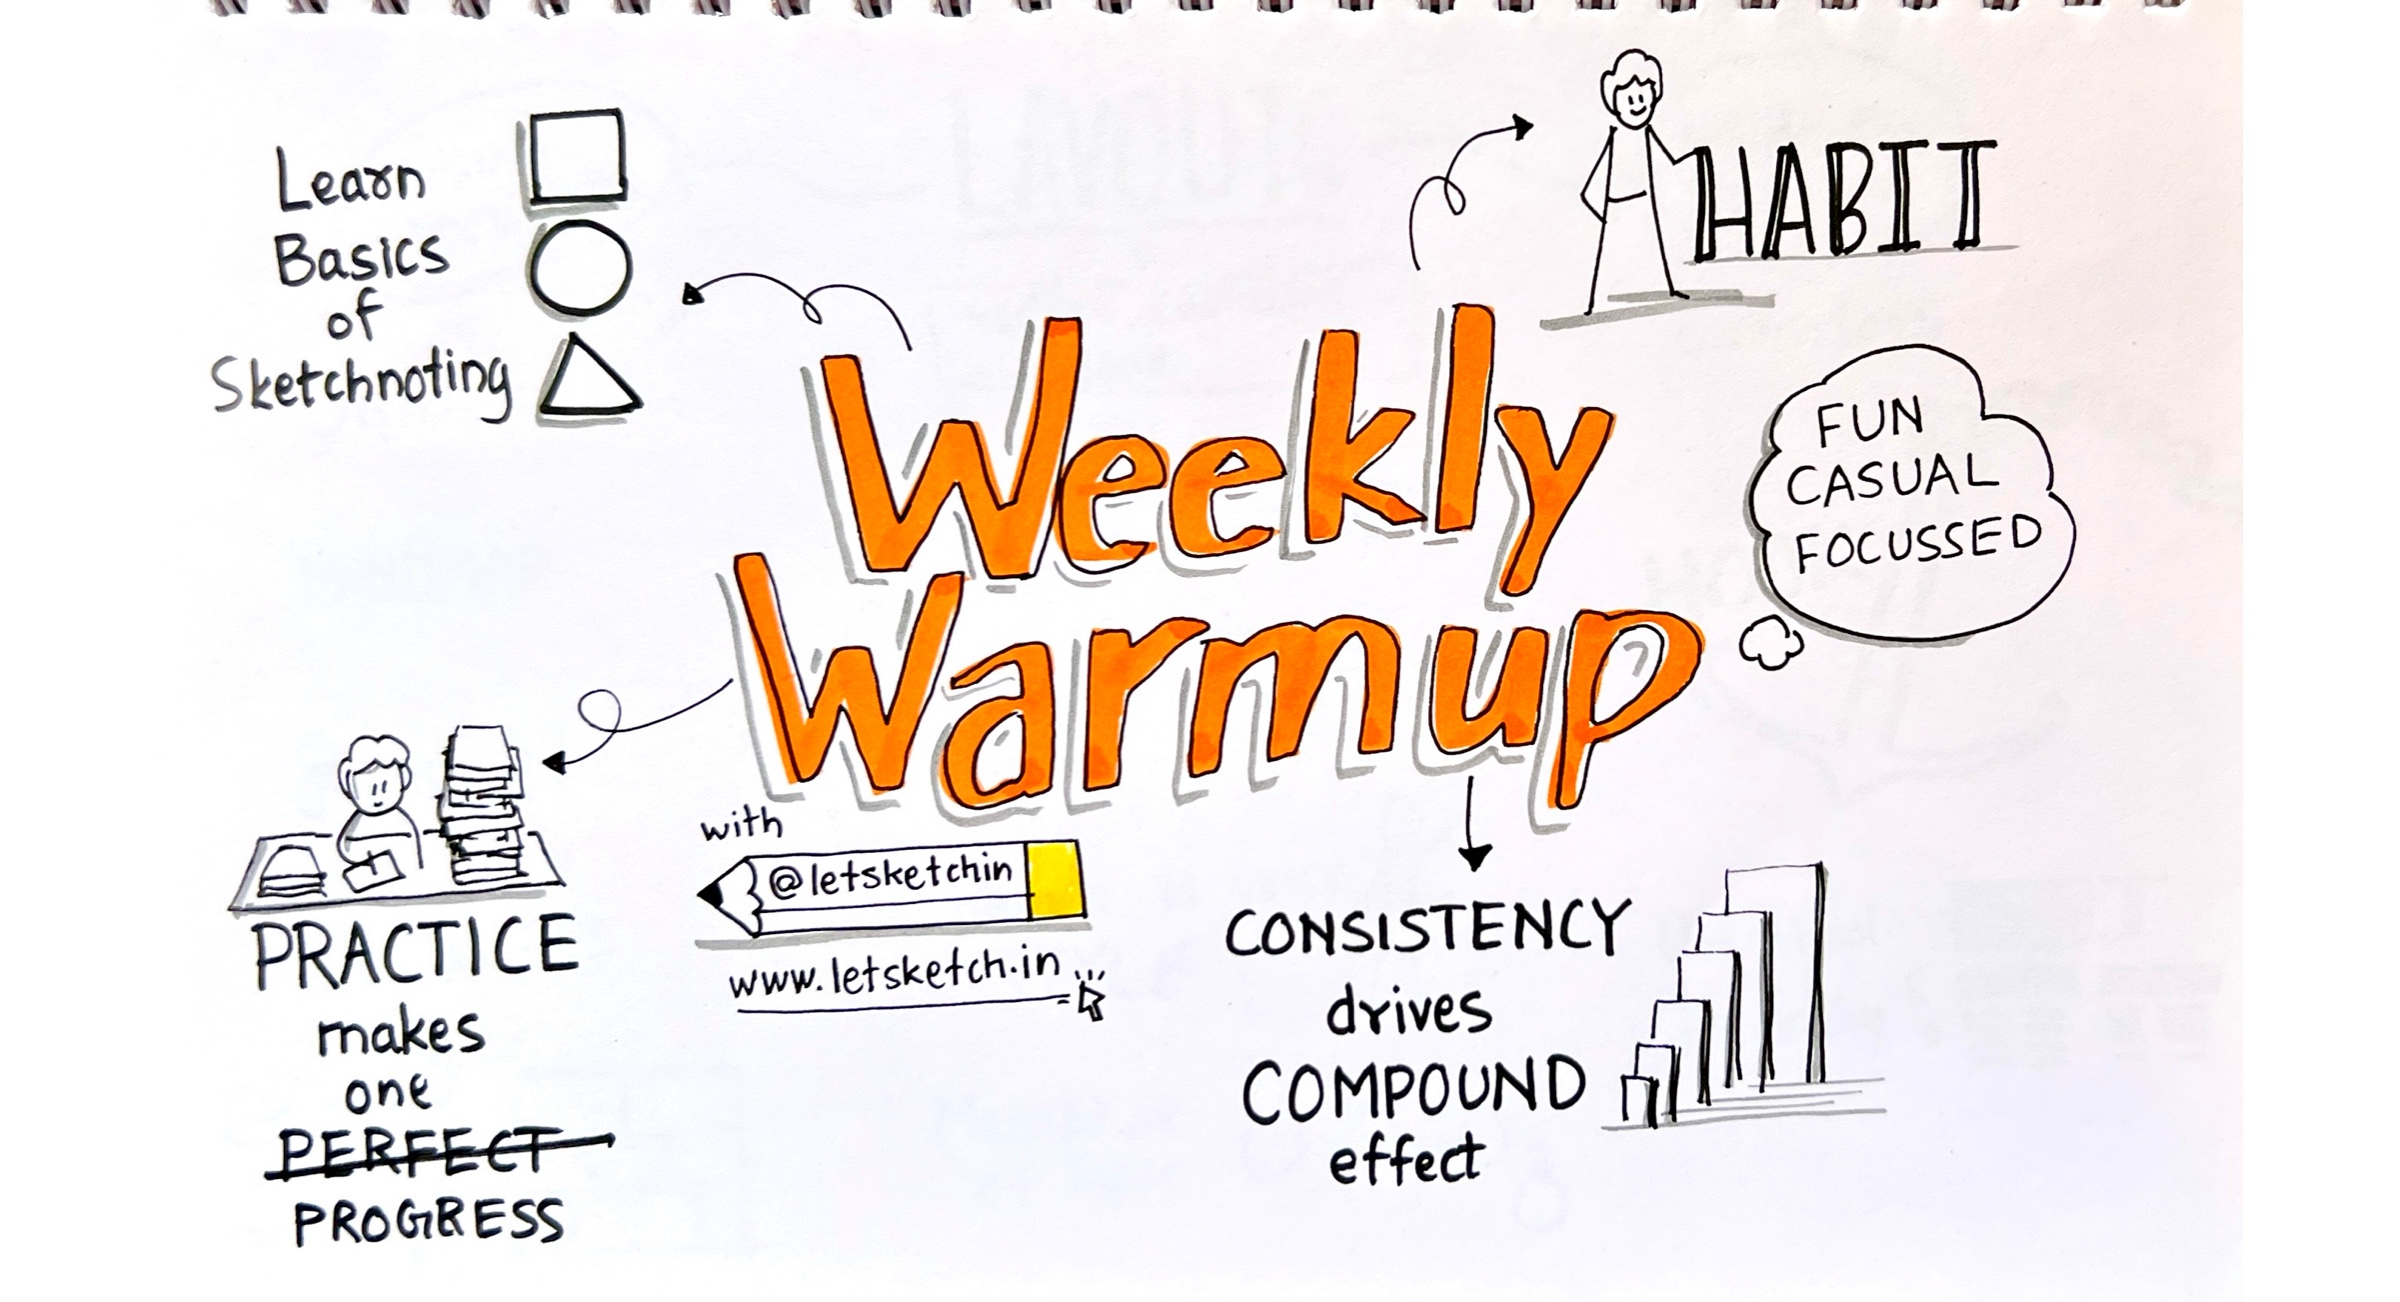 Learn
Basics
of
Sketchnoting
HABIT
Weekly
Warmup
FUN
CASUAL
FOCUSSED
with
@letsketchin
www.letsketch.in
PRACTICE
makes
one
PERFECT
PROGRESS
CONSISTENCY
drives
COMPOUND
effect